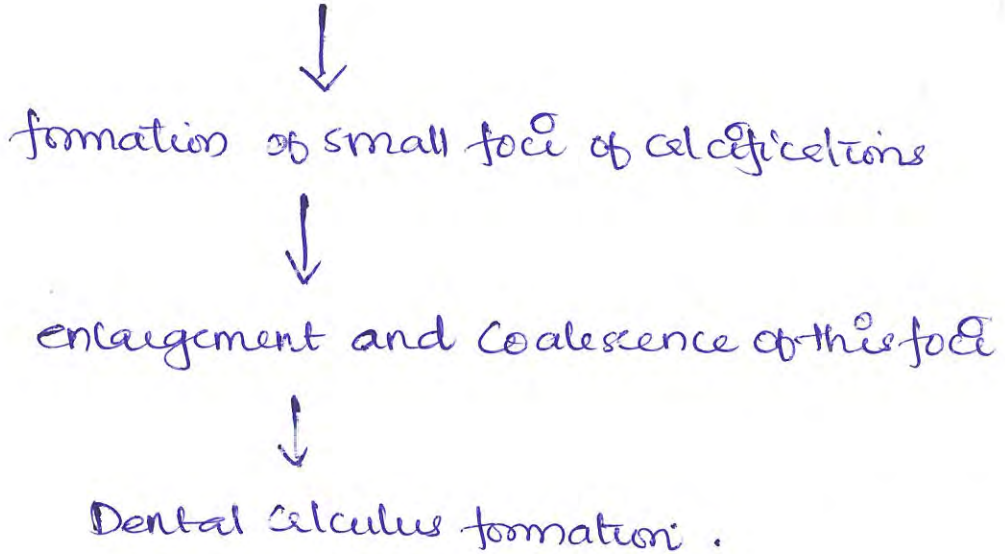 ↓
formation of small foci of calcifications
↓
enlargement and Coalescence of this foci
↓
Dental calculus formation.